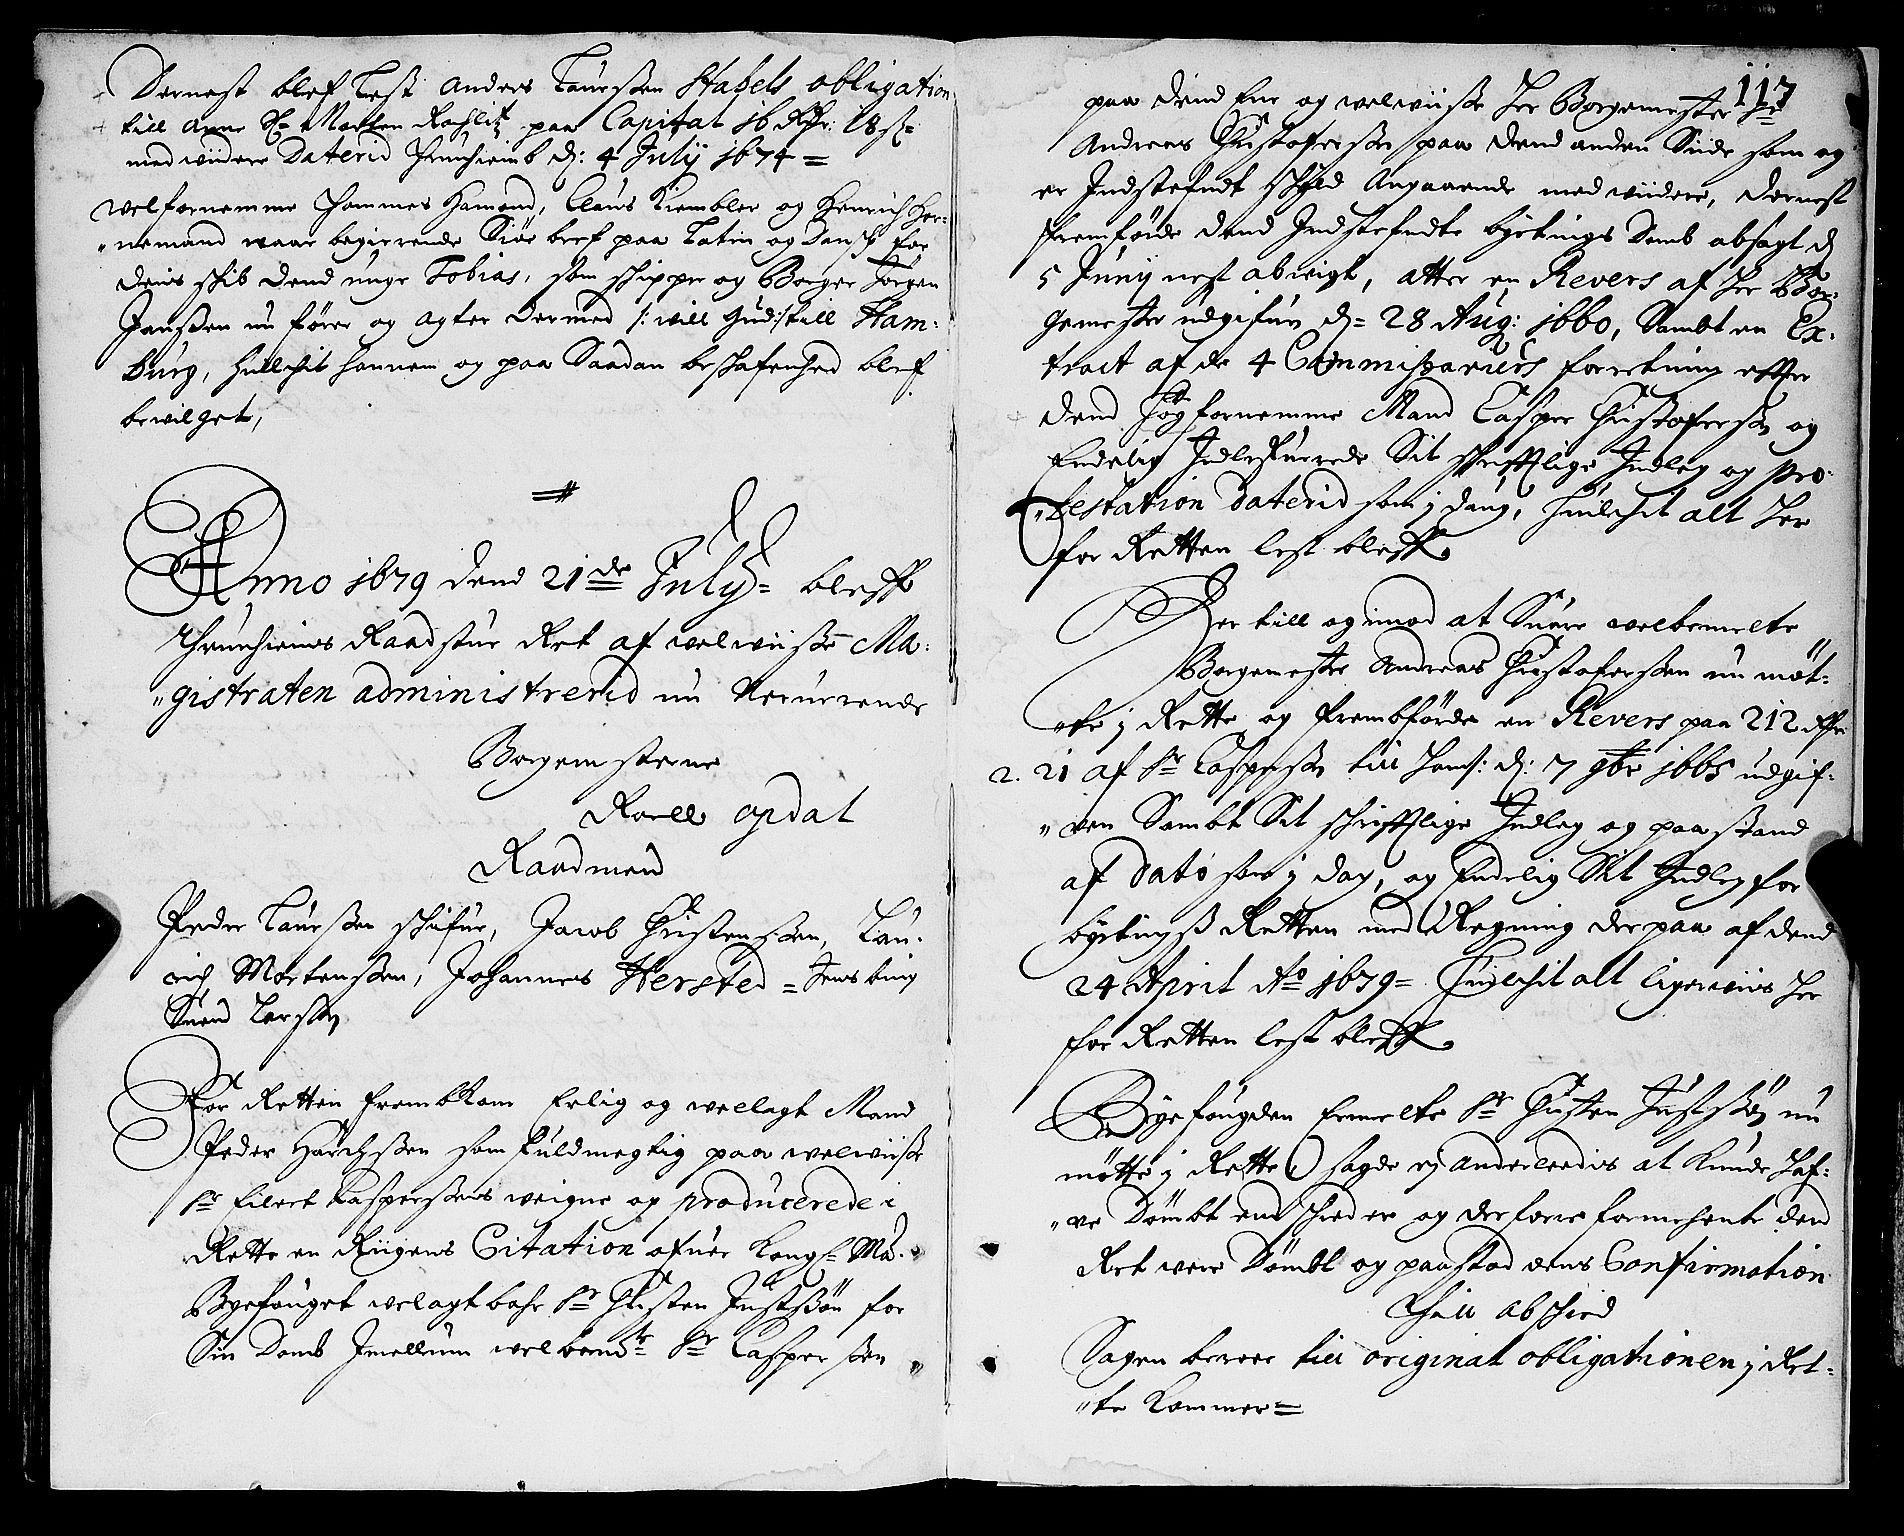 Dernest blef Lest Anders Laurssen Stabels obligation
till Anne Sl: Morten Rachlitz paa Capital 16 Rdr: 18 s=
med viidere Daterid Thrunhiemb d: 4 July 1674=
velfornemme Thommes Hamond, Claus Kiembler og Henrich Her=
"nemand waar begierende Siøe bref paa Latin og Dansk for
deris skib dend unge Tobias, som skipper og Borger Jørgen
Janssen nu fører og agter dermed /: will Gud:/ till Ham=
burg, huilchit hannem og paa Saadan beskafenhed blef
bewilget,
Anno 1679 dend 21de July= bleff
Thrunhiems Raadstue Ret af velwiisse Ma=
"gistraten administrerid nu Nerverende
Borgemesterne
Roell Opdal
Raadmend
Peder Laurssen skrifuer, Jacob Christenssen, Lau=
rids Mortenssen, Johannes Hersted= Jens bing
Suend Larssen
For Retten frembkom Erlig og wellagt Mand
Peder Harchssen som fuldmegtig paa welwiisse
Sr Eilert Casperssens weigne og producerede i
Rette en Riigens Citation ofuer Kongl: Ma:
Byefouget welagtbahr Sr Christen Justssøn for
Sin Domb Jmellum welbemte Sr Casperssen
117
paa dend Ene og welwiisse Her Borgemester Hr
Andreas Christofersen paa dend anden Siide som og
er Indstefndt schyld Angaaende med wiidere, dernest
fremførde dend Indstefndte byetings Domb afsagt d
5 Juny nest abwigt, atter en Revers af Her Bor=
gemester udgifuen d= 28 Aug: 1660, Sambt en Ex=
tract af de 4 Commissariers forretning effter
dend Høyfornemme Mand Casper Christofersen og
Endelig Indlefuerede Sit schrifftlige Indleg og Pro=
"testation Daterid som j daug, huilchit alt her
for Retten lest bleff
Her till og imod at Suare welbemelte
Borgemester Andreas Christoferssen nu møt=
"te j Rette og frembførde en Revers paa 212 Rdr
2. 21 af Sr Casperssen till ham: d: 7 9br 1665 udgif=
"ven Sambt Sit schrifftlige Indleg og paastand
af Dato som j dag, og Endelig Sit Indleg for
byetings Retten med Regning der paa af dend
24 April Ao 1679= huilchit alt ligerwiis her
for Retten lest bleff
Byefougden bemelte Sr Christen Justssøn nu
møtte j Rette sagde ej anderleedis at kunde haf=
"ve Dømbt end scheed er og derfore formehente dend
Ret were Dømbt og paastod dens Confirmation
Thill abschied
Sagen beroer till original obligationen j Ret=
"te kommer=